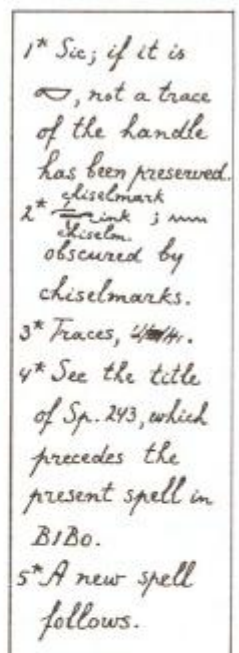 1* Sic; if it is
, not a trace
of the handle
has been preserved.
chiselmark
2* ink ;
chiselm.
obscured by
chiselmarks.
3* Traces, .
4* See the title
of Sp. 243, which
precedes the
present spell in
B1Bo.
5* A new spell
follows.